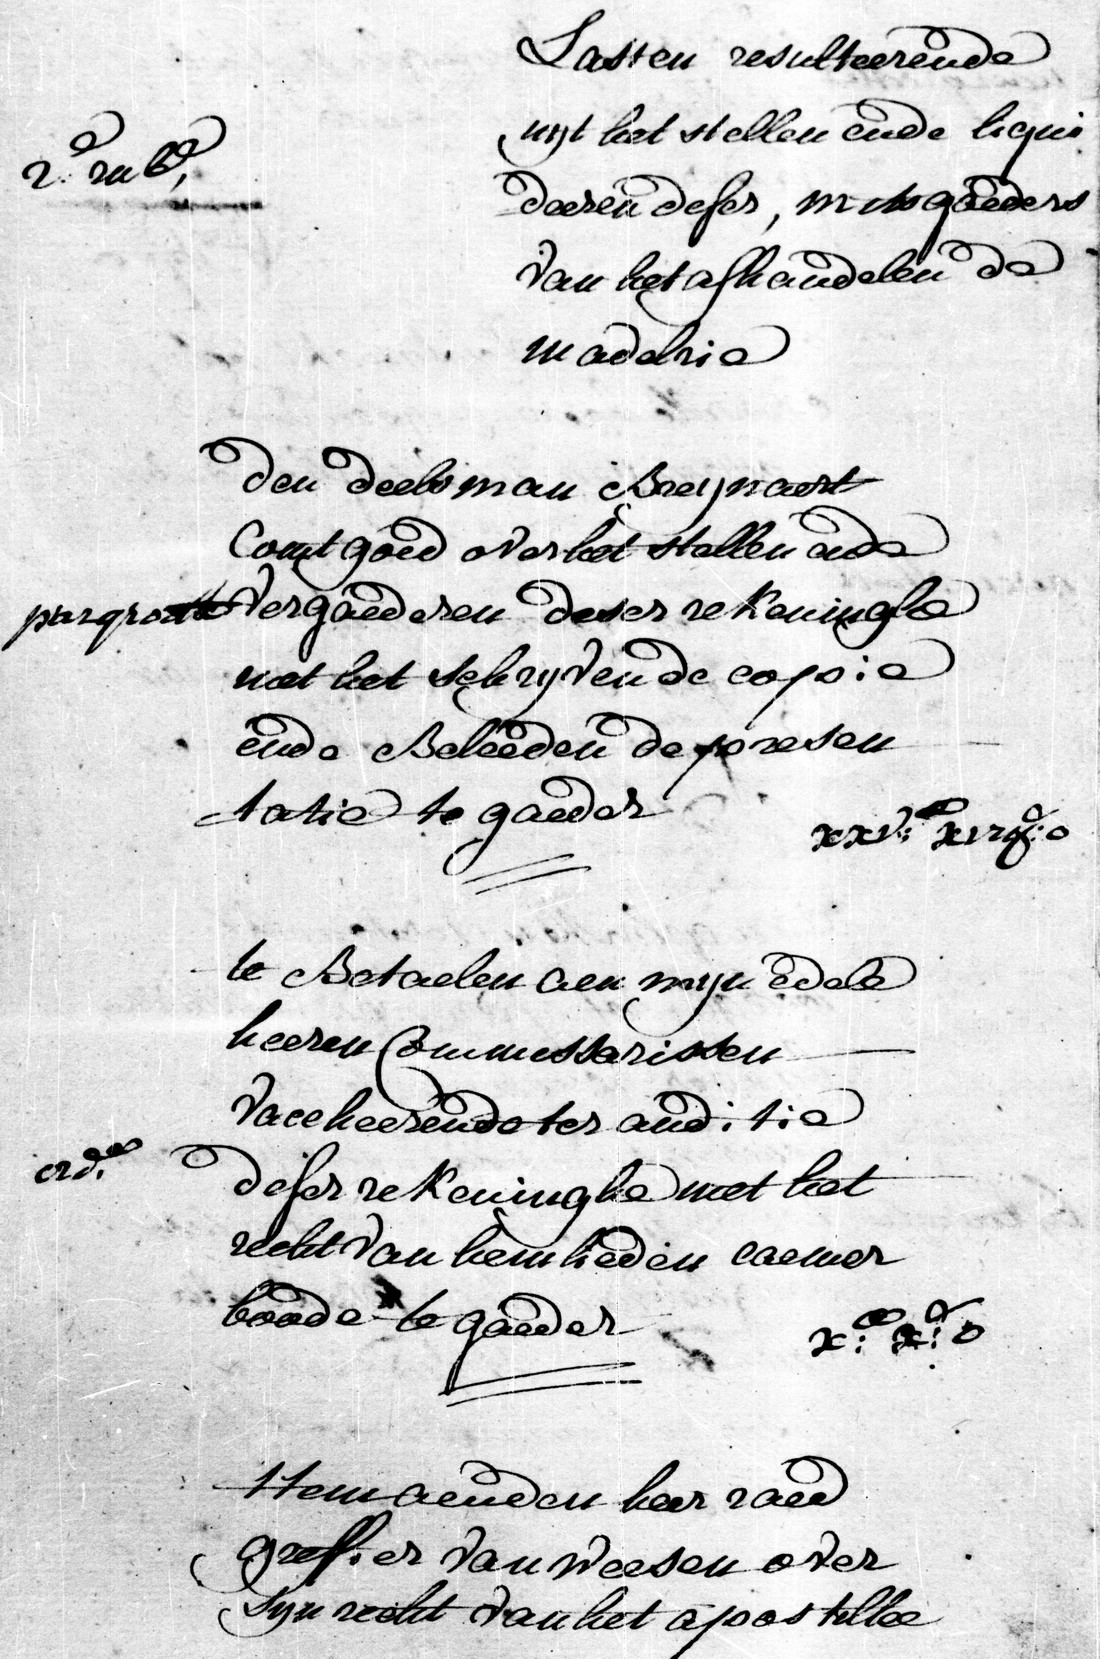 Lasten resulteerende
uijt het stellen ende liqui
deeren deser, mitsgaeders
van het afhandelen de
materie
2.e rub.e
den deelsman Breijnaert
Comt goed over het stellen ende
vergaederen deser rekeninghe
met het schrijven de copie
ende Beleeden de presen
tatie te gaeder
xxv:
te Betaelen aen mijn edele
heeren Commissarissen
vacheerende ter auditie
deser rekeninghe met het
ord.e
recht van hemlieden caemer
boode te gaeder
x: x: o
Item aen den heer raed
greffier van weesen over
sijn recht van het apostille